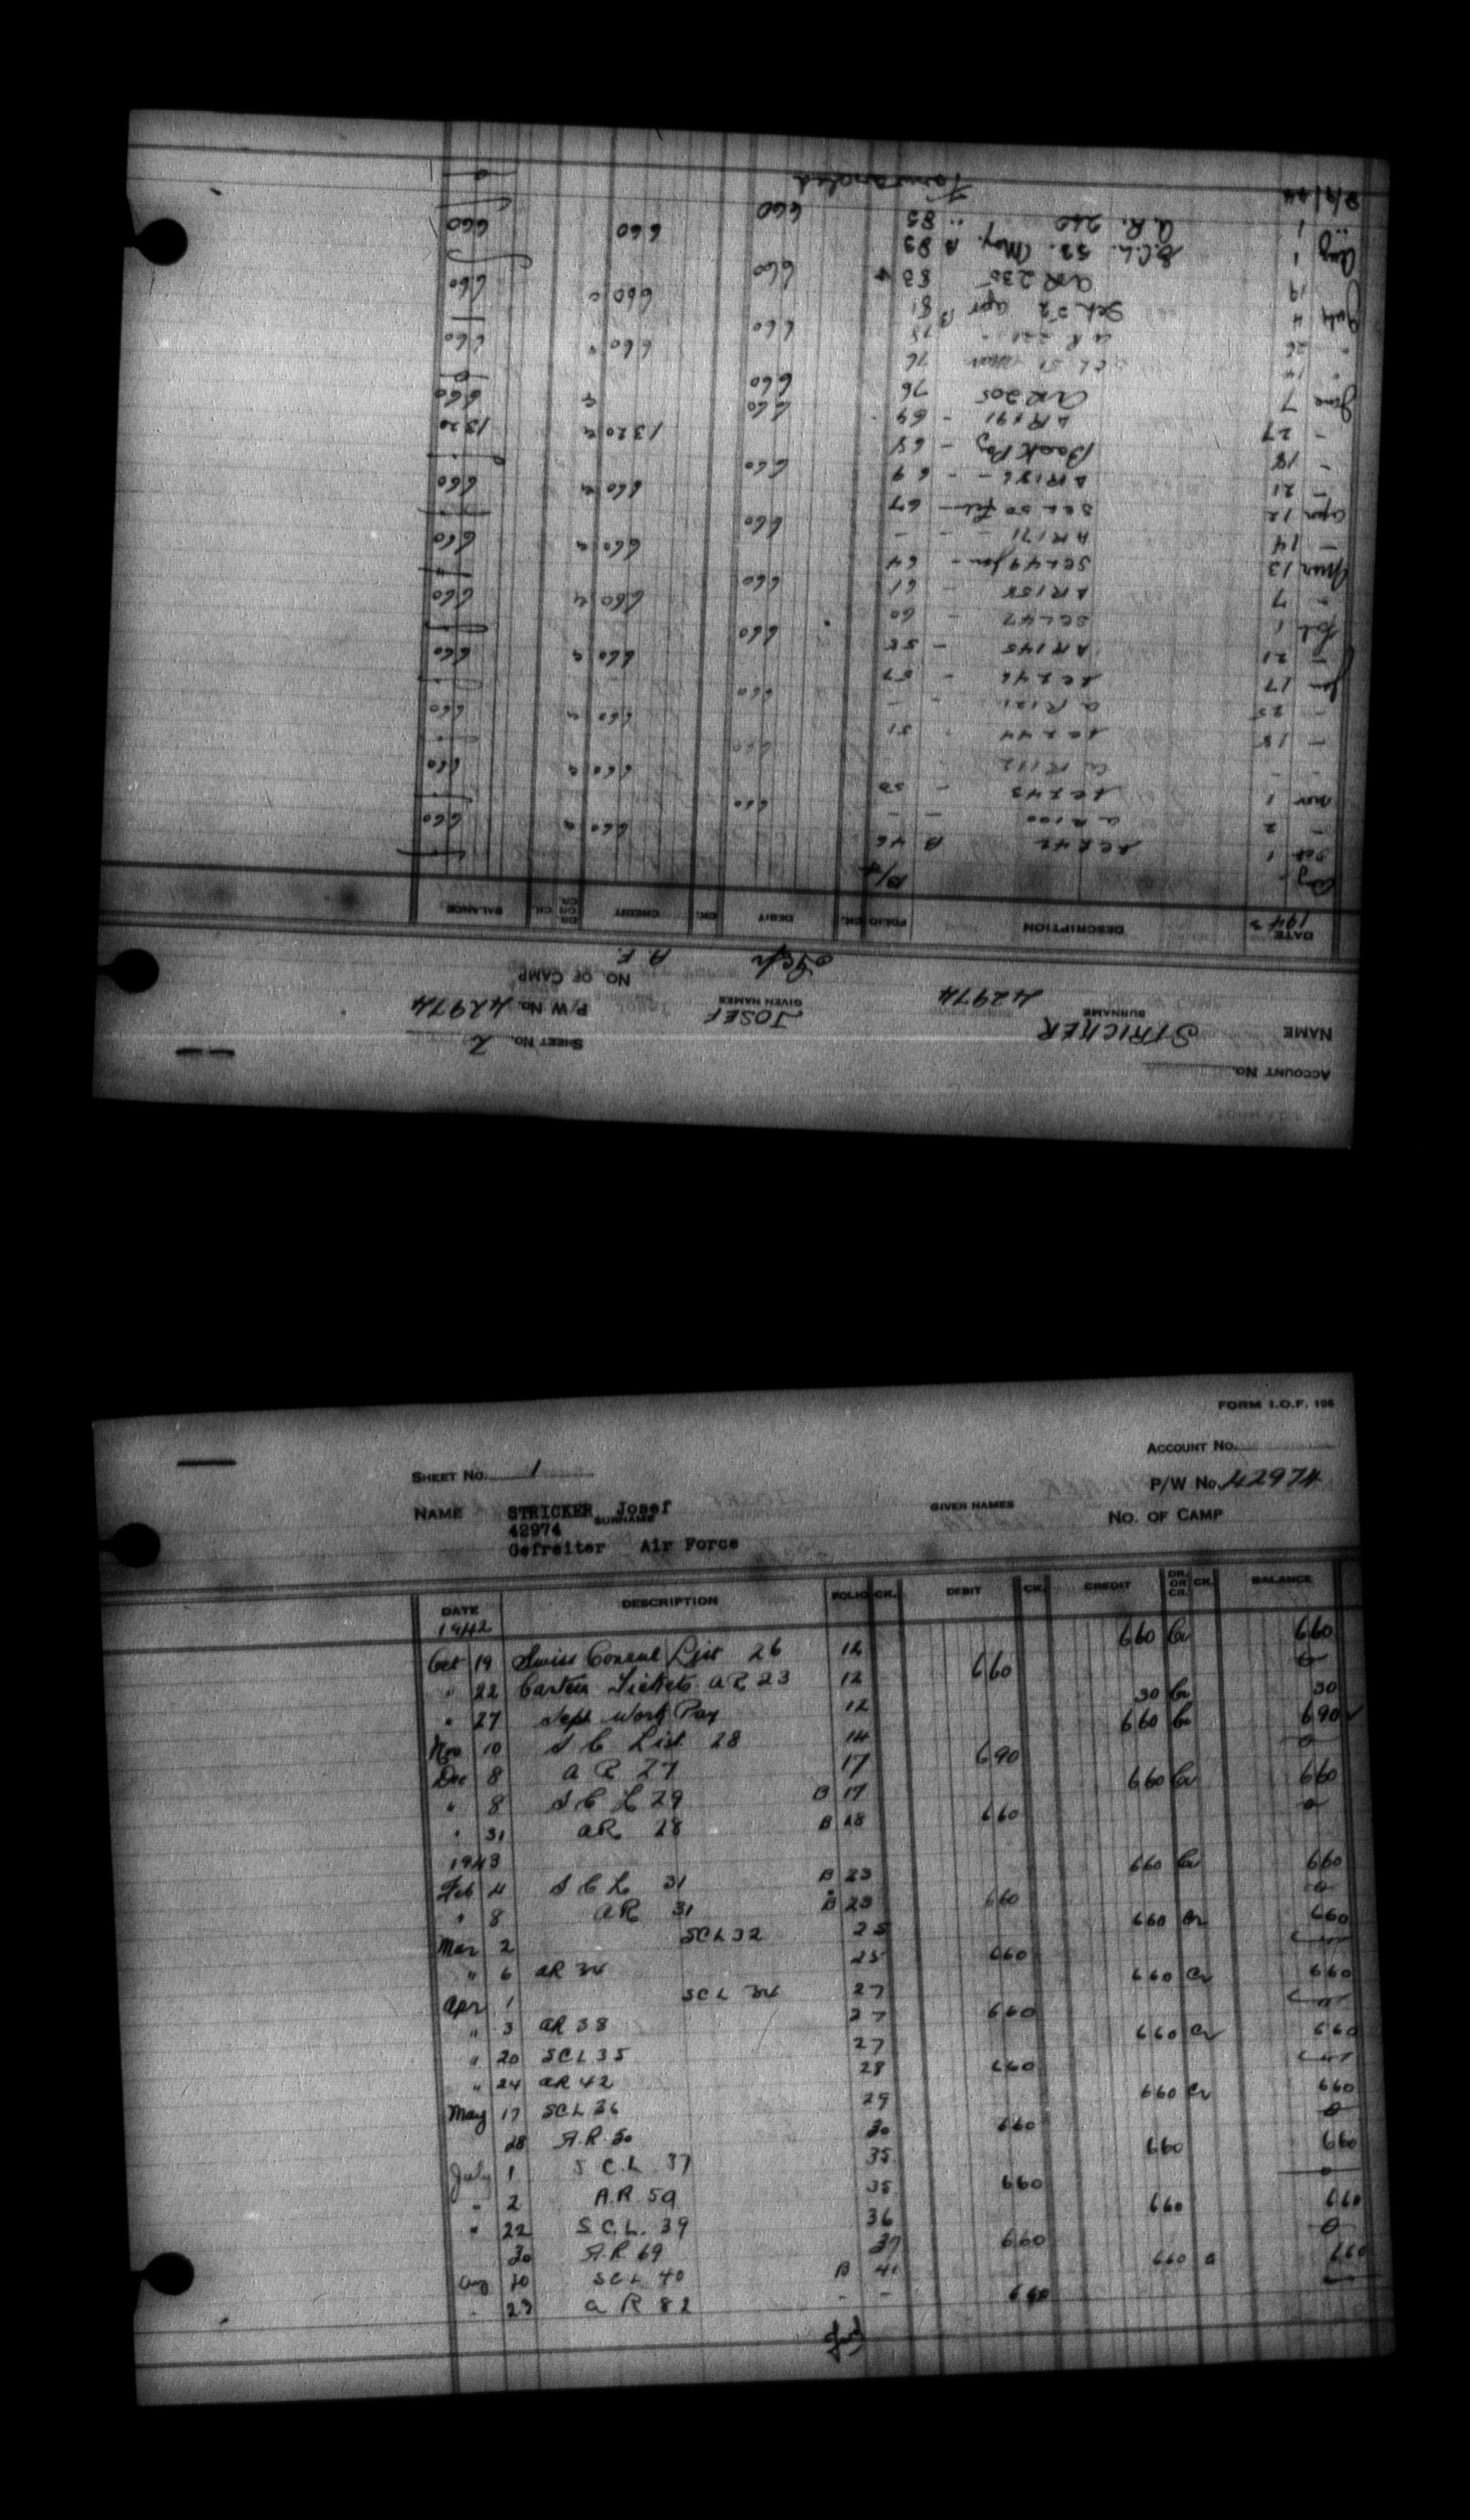 ACCOUNT No.
SHEET No. 2
NAME STRICKER JOSEF P/W No. 42974
SURNAME GIVEN NAMES
42974 Gefr A.F. NO. OF CAMP
DATE DESCRIPTION FOLIO CK. DEBIT CK. CREDIT DR. OR CR. CK. BALANCE
1943
Aug B/f
1 SCL 42 B 46 660 660
- 2 AR 100 - - 660
Nov 1 SCL 43 - 50 660 660
- - AR 112 660
- 18 SCL 44 51 660 660
- 25 AR 121 - - 660
Jan 17 SCL 46 - 57 660 660
- 21 AR 145 - 58 660
Feb 1 SCL 47 - 60 660 660
- 7 AR 158 - 61 660
Mar 13 SCL 49 Jan - 64 660 660
- 14 AR 171 - - - 660
Apr 12 SCL 50 Feb - 67 660 660
- 21 AR 186 - - 69 660
- 18 Back Pay - 68 1320 1320
- 27 AR 191 - 69 660 660
June 7 AR 205 76 660 0
" 14 SCL 51 Mar 76 660 660
" 26 AR 221 - 78 660
July 4 Scl 52 Apr B 81 660 660
19 AR 235 83 660
Aug 1 S.C.L. 53. May. B 83 660 660
" 1 A.R. 260 " 85 660
Forwarded 0
FORM I.O.F. 106
ACCOUNT No.
SHEET No. 1 P/W No. 42974
NAME STRICKER Josef GIVEN NAMES NO. OF CAMP
SURNAME
42974
Gefreiter Air Force
DATE DESCRIPTION FOLIO CK. DEBIT CK. CREDIT DR. OR CR. CK. BALANCE
1942
Oct 19 Swiss Consul List 26 12 660 Cr 660
" 22 Canteen Tickets AR 23 12 660 0
" 27 Sept Work Pay 12 30 Cr 30
Nov 10 S C List 28 14 660 Cr 690
Dec 8 A R 27 17 690 0
" 8 S C L 29 B 17 660 Cr 660
" 31 AR 28 B 18 660 0
1943
Feb 4 S C L 31 B 23 660 Cr 660
" 8 AR 31 B 23 660 0
Mar 2 SCL 32 25 660 Cr 660
" 6 AR 34 25 660
Apr 1 SCL 34 27 660 Cr 660
" 3 AR 38 27 660
" 20 SCL 35 27 660 Cr 660
" 24 AR 42 28 660
May 17 SCL 36 29 660 Cr 660
28 A.R. 50 30 660 0
July 1 S C.L. 37 35 660 660
" 2 A.R. 59 35 660 0
" 22 S.C.L. 39 36 660 660
30 A.R 69 39 660 0
Aug 10 SCL 40 B 41 660 660
- 23 A R 82 - - 660
fwd